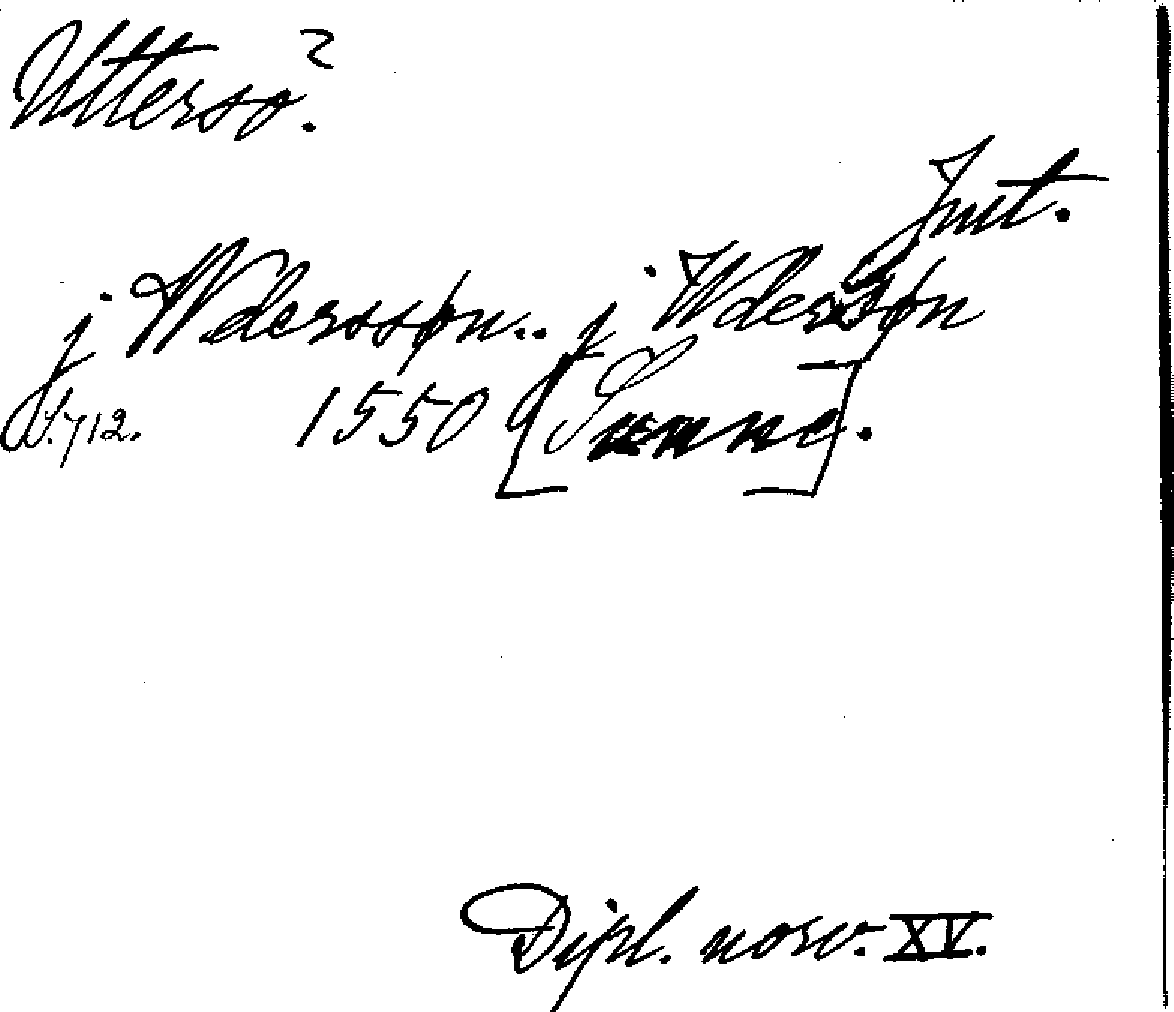 Utterso?
Jmt.
j Wderssøn.. j Wdersøn
S. 712. 1550 [Sunne].
Dipl. norv. XV.